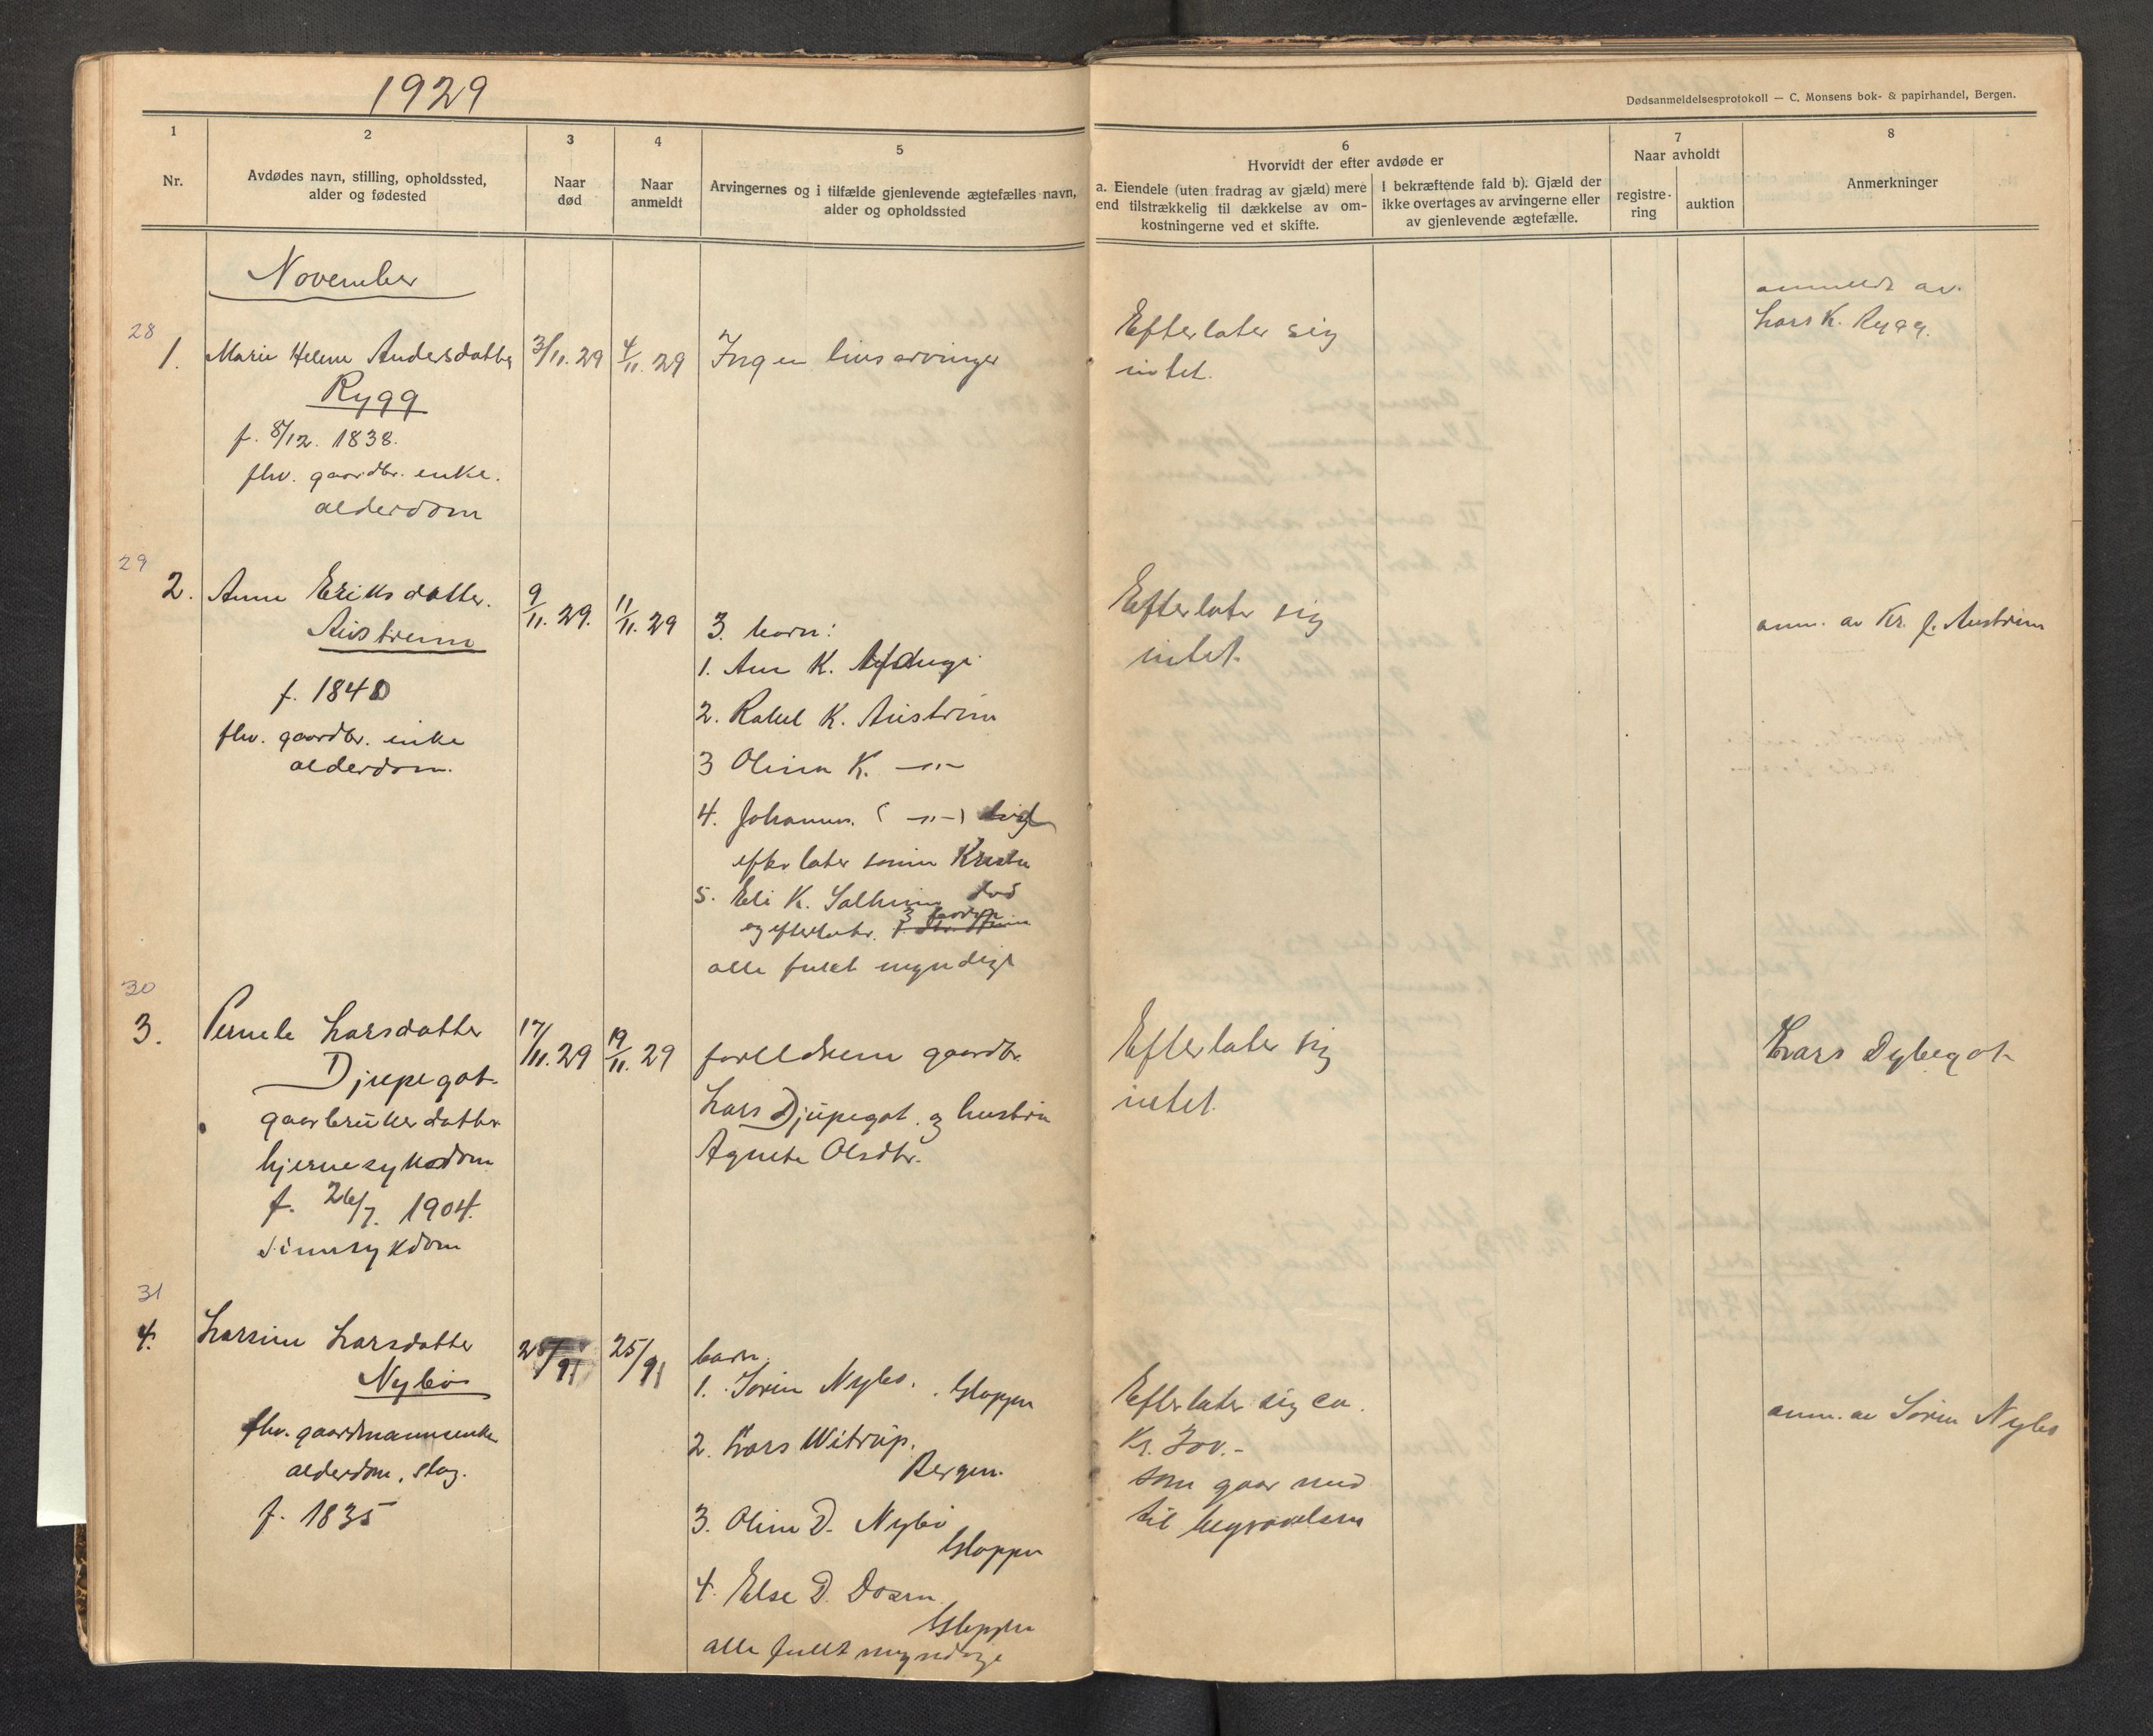 1929
Dødsanmeldelsesprotokoll — C. Monsens bok- & papirhandel, Bergen.
1
Nr.
2
Avdødes navn, stilling, opholdssted,
alder og fødested
3
Naar
død
4
Naar
anmeldt
5
Arvingernes og i tilfælde gjenlevende ægtefælles navn,
alder og opholdssted
6
Hvorvidt der efter avdøde er
a. Eiendele (uten fradrag av gjæld) mere
end tilstrækkelig til dækkelse av om-
kostningerne ved et skifte.
I bekræftende fald b). Gjæld der
ikke overtages av arvingerne eller
av gjenlevende ægtefælle.
7
Naar avholdt
registre-
ring
auktion
8
Anmerkninger
November
28
1.
Marie Helene Andersdatter
Rygg
f. 8/12. 1838.
fhv. gaardbr. enke.
alderdom
3/11. 29
4/11. 29
Ingen livsarvinger
Efterlater sig
intet.
anmeldt av
Lars K. Rygg.
29
2.
Anne Eriksdatter.
Austreim
f. 1840
fhv. gaardbr. enke
alderdom.
9/11. 29.
11/11. 29
3. barn:
1. Ane K.
2. Rakel K. Austrim
3 Olina K. —"—
4. Johannes. ( —"— )
efterlater sønn
5. Eli K. Solheim død
og efterlater. 3
alle fuldt myndige
Efterlater sig
intet.
anm. av Kr. J. Austrim
30
3.
Pernele Larsdatter
Djupegot
gaarbruker datter
hjernesykdom
f. 26/7. 1904.
Sinnsykdom
17/11. 29
19/11. 29
foreldrene gaardbr.
Lars Djupegot. og hustru
Agnete Olsdtr.
Efterlater sig
intet.
Lars Dybegot
31
4.
Larsine Larsdatter
Nybø
fhv. gaardmannsenke
alderdom, slag.
f. 1835
25/11
barn.
1. Sørin Nybø. Gloppen
2. Lars Witrup.
Bergen.
3. Oline D. Nybø
Gloppen
4. Else D.
Gloppen
alle fullt myndige
Efterlater sig ca.
Kr.
som gaar med
til begravelsen
anm. av Sørin Nybø